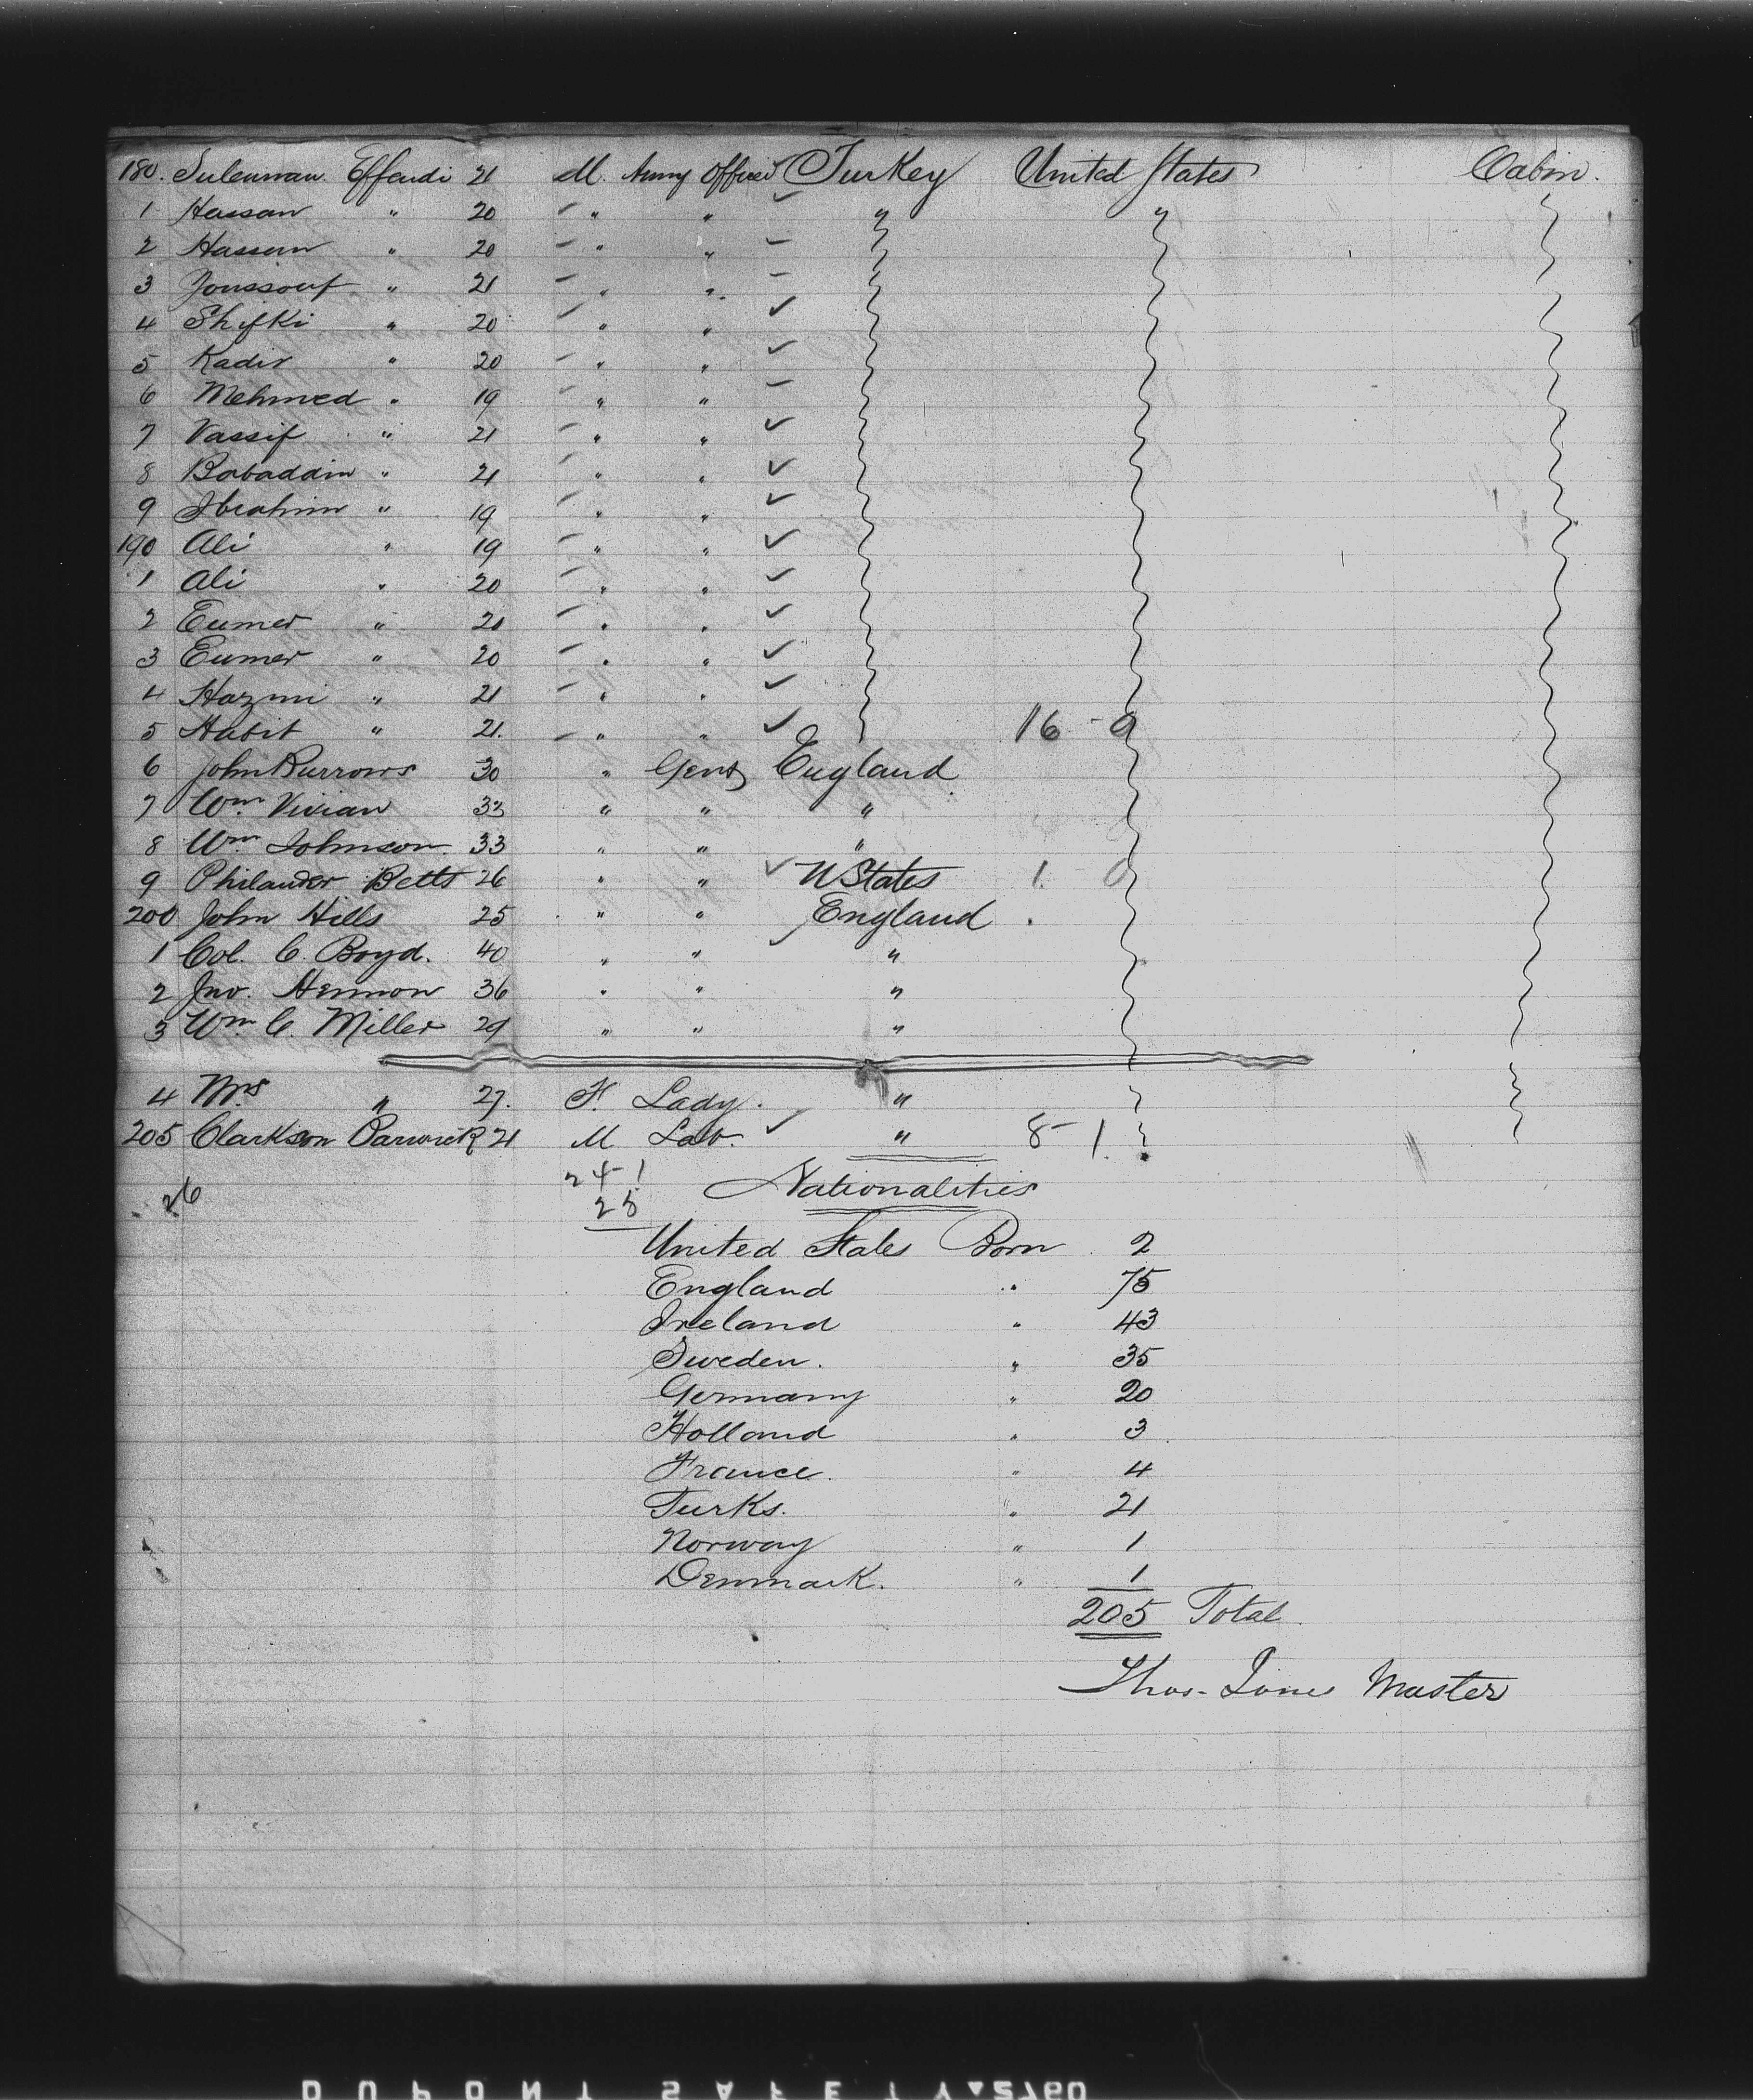 180. Suleiman Effendi 21 M. Army Officer Turkey United States Cabin.
1 Hassan " 20 " " " "
2 Hassan " 20 " "
3 Joussouf " 21 " "
4 Shifki " 20 " "
5 Kadir " 20 " "
6 Mehmed " 19 " "
7 Vassif " 21 " "
8 Bobaddin " 21 " "
9 Ibrahim " 19 " "
190 Ali " 19 " "
1 Ali " 20 " "
2 Eumer " 20 " "
3 Eumer " 20 " "
4 Hazmi " 21 " "
5 Habit " 21. " " 16 - 0
6 John Burrows 30 " Gent England
7 Wm Vivian 33 " " "
8 Wm Johnson 33 " " "
9 Philander Betts 26 " " U States 1. 0
200 John Hills 25 " " England .
1 Col. C. Boyd. 40 " " "
2 Jno. Hennon 36 " " "
3 Wm C. Miller 29 " " "
4 Mrs " 27. F. Lady. "
205 Clarkson Barwick 21 M Lab. " 8 - 1.
24 - 1
26 25 Nationalities
United States Born 2
England " 75
Ireland " 43
Sweden. " 35
Germany " 20
Holland " 3
France. " 4
Turks. " 21
Norway " 1
Denmark. " 1
205 Total
Thos. Jones Master
DUPONT SAFETY